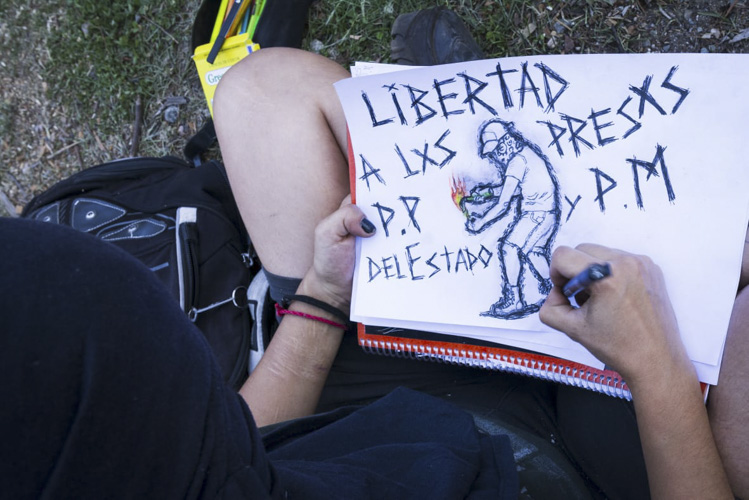 LiBERTAD
A LXS PRESXS
P.P Y P.M
DEL ESTADO